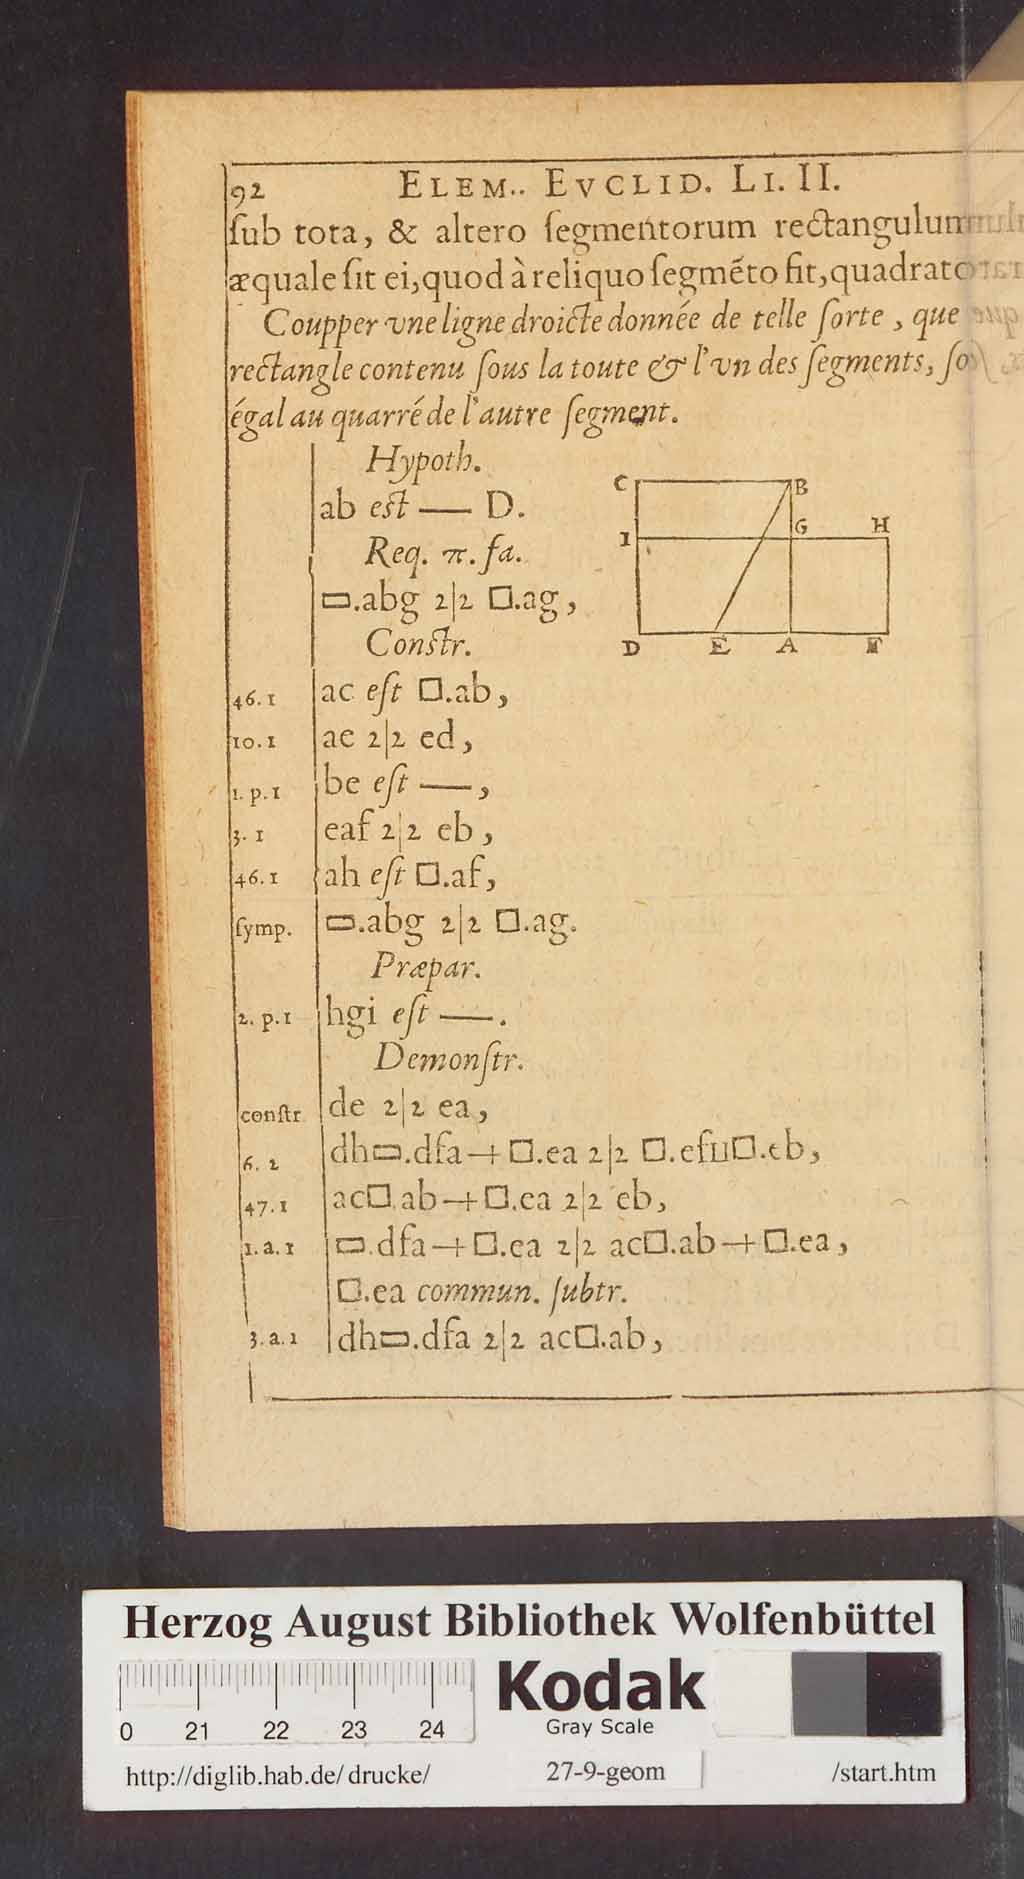 92 ELEM.. EVCLID. LI. II.
ſub tota, & altero ſegmentorum rectangulum
æquale ſit ei, quod à reliquo ſegmẽto fit, quadrato
Coupper vne ligne droicte donnée de telle ſorte, que
rectangle contenu ſous la toute & l'vn des ſegments, ſo
égal au quarré de l'autre ſegment.
Hypoth.
ab est — D.
Req. π. fa.
▭.abg 2|2 □.ag,
Constr.
C B
G H
I
D E A F
46. 1 ac eſt □.ab,
10. 1 ae 2|2 ed,
1. p. 1 be eſt —,
3. 1 eaf 2|2 eb,
46. 1 ah eſt □.af,
ſymp. ▭.abg 2|2 □.ag.
Præpar.
2. p. 1 hgi eſt —.
Demonſtr.
conſtr. de 2|2 ea,
6. 2 dh▭.dfa + □.ea 2|2 □.ef⊔□.eb,
47. 1 ac□.ab + □.ea 2|2 eb,
1. a. 1 ▭.dfa + □.ea 2|2 ac□.ab + □.ea,
□.ea commun. ſubtr.
3. a. 1 dh▭.dfa 2|2 ac□.ab,
Herzog August Bibliothek Wolfenbüttel
Kodak
Gray Scale
0 21 22 23 24
http://diglib.hab.de/drucke/ 27-9-geom /start.htm